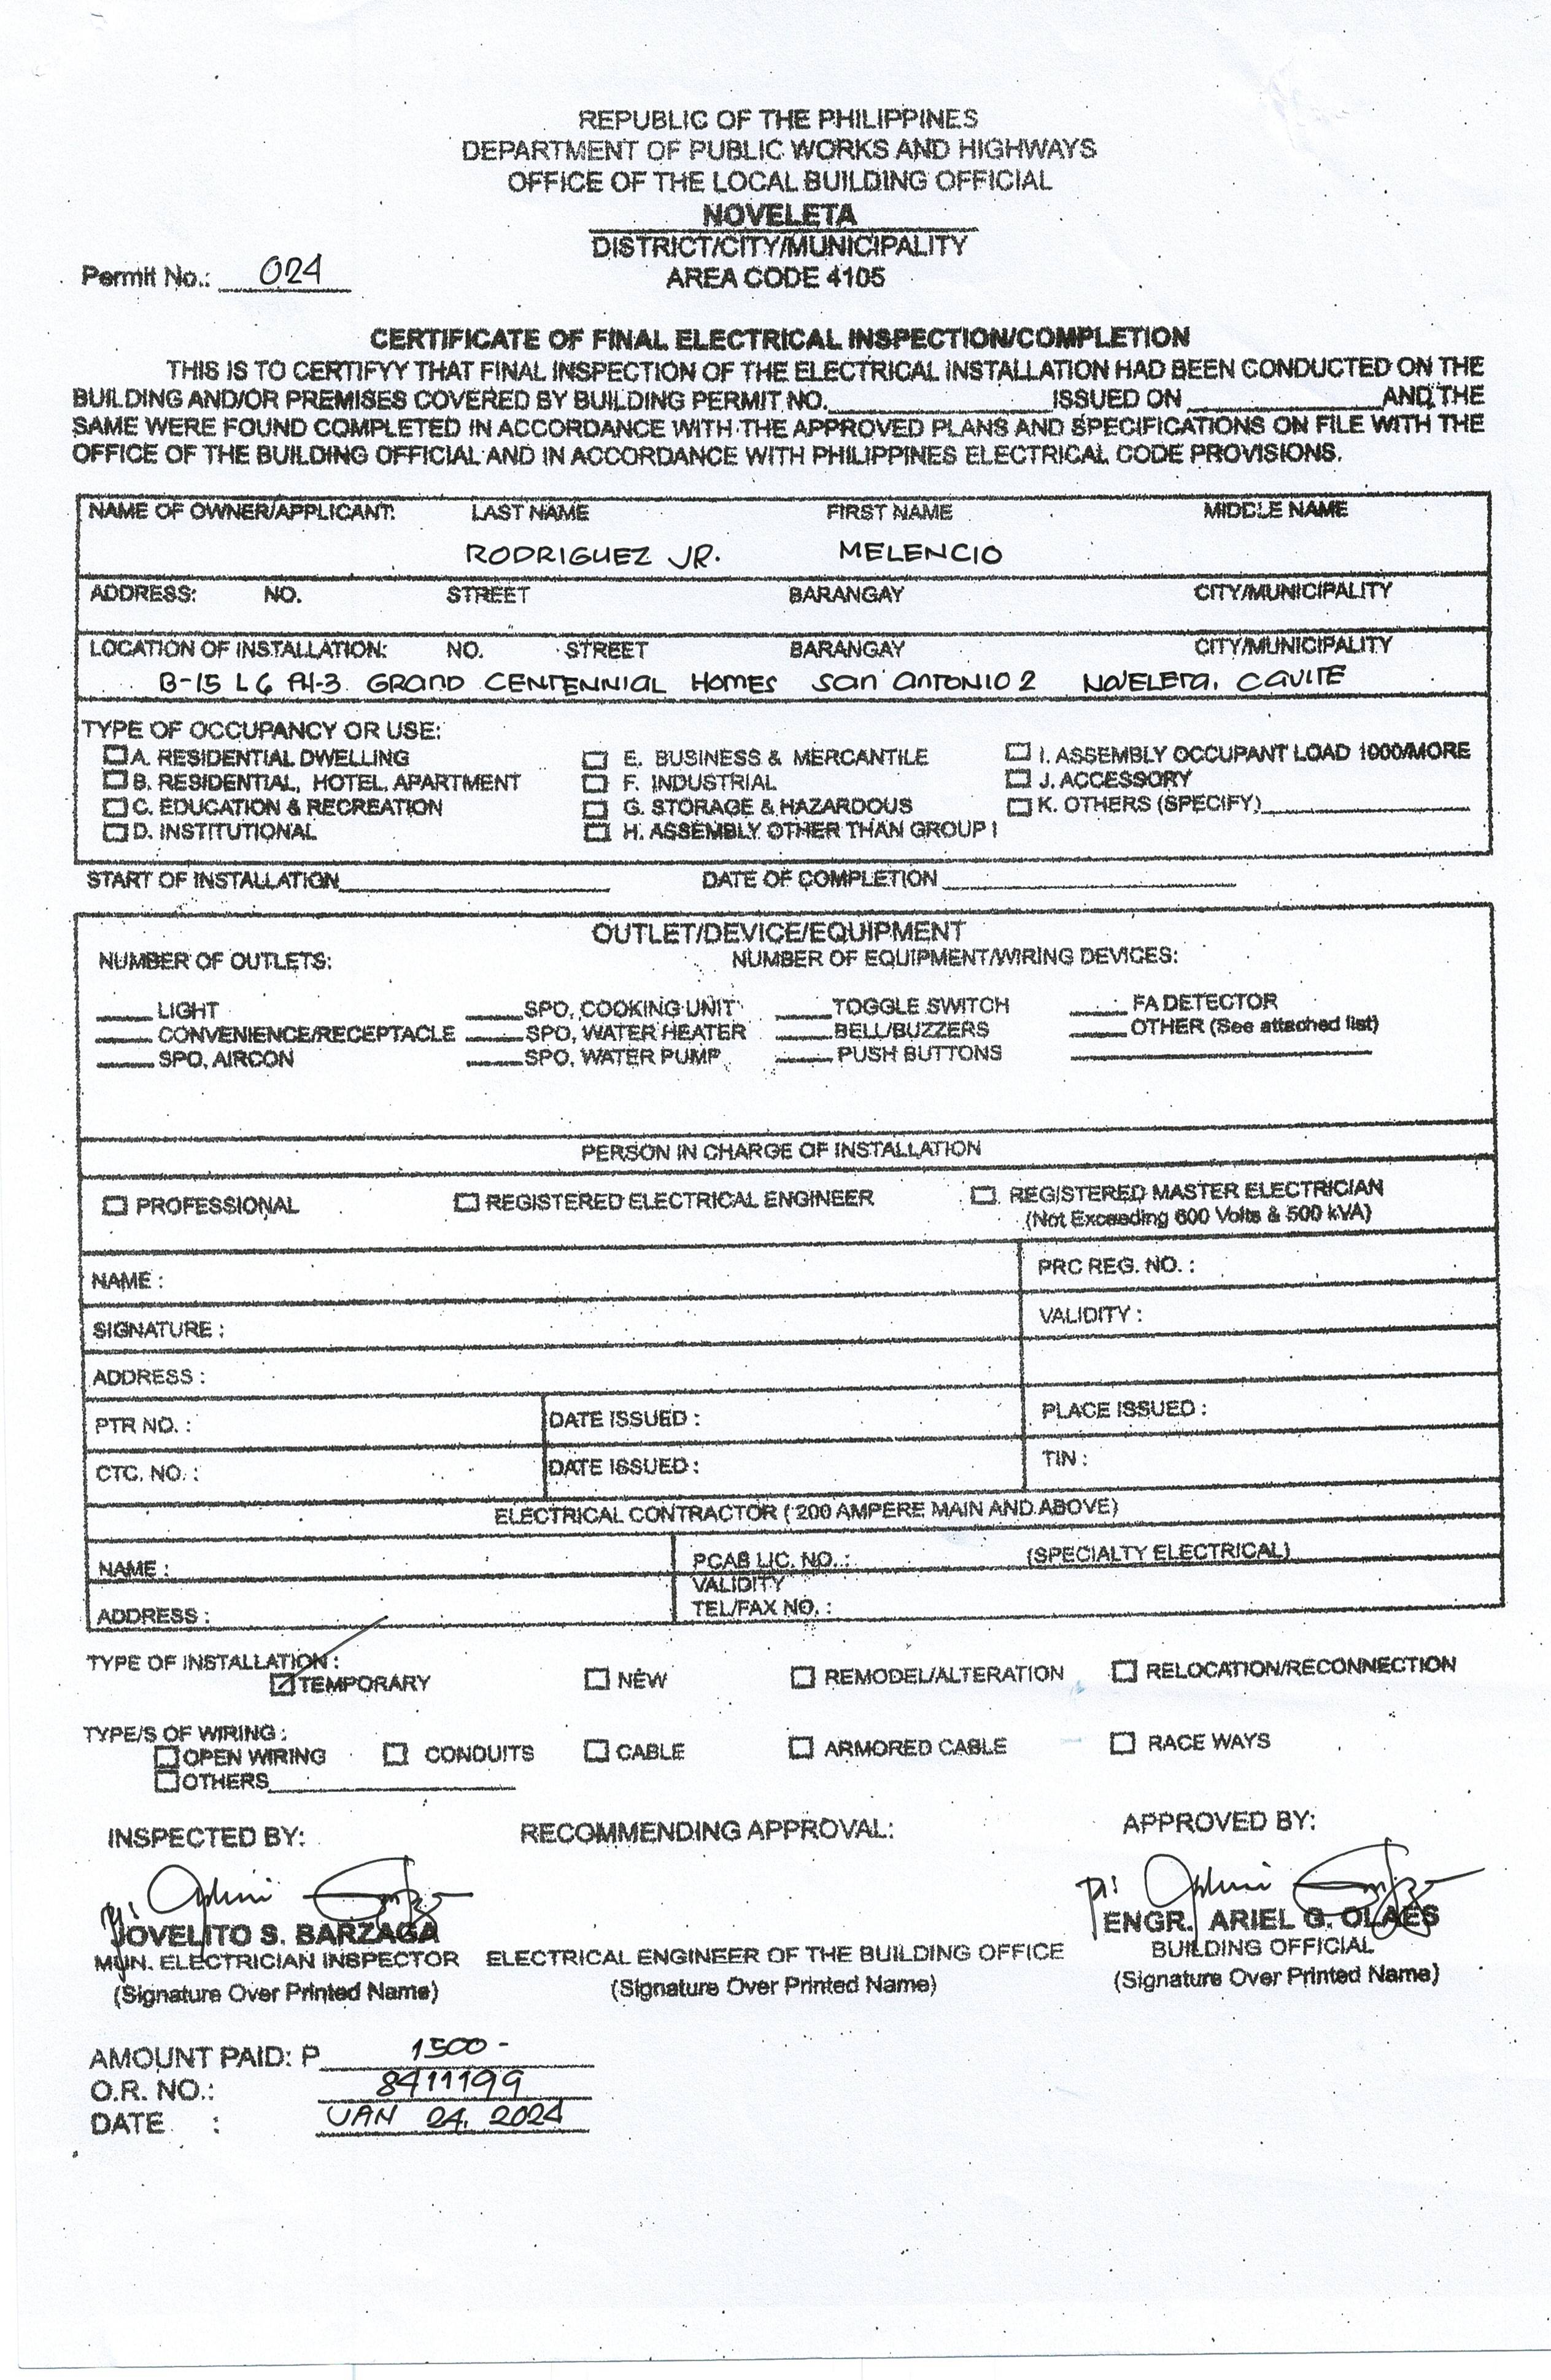 REPUBLIC OF THE PHILIPPINES
DEPARTMENT OF PUBLIC WORKS AND HIGHWAYS
OFFICE OF THE LOCAL BUILDING OFFICIAL
NOVELETA
DISTRICT/CITY/MUNICIPALITY
Permit No.: 024 AREA CODE 4105
CERTIFICATE OF FINAL ELECTRICAL INSPECTION/COMPLETION
THIS IS TO CERTIFYY THAT FINAL INSPECTION OF THE ELECTRICAL INSTALLATION HAD BEEN CONDUCTED ON THE
BUILDING AND/OR PREMISES COVERED BY BUILDING PERMIT NO. ISSUED ON AND THE
SAME WERE FOUND COMPLETED IN ACCORDANCE WITH THE APPROVED PLANS AND SPECIFICATIONS ON FILE WITH THE
OFFICE OF THE BUILDING OFFICIAL AND IN ACCORDANCE WITH PHILIPPINES ELECTRICAL CODE PROVISIONS.
NAME OF OWNER/APPLICANT: LAST NAME FIRST NAME MIDDLE NAME
RODRIGUEZ JR. MELENCIO
ADDRESS: NO. STREET BARANGAY CITY/MUNICIPALITY
LOCATION OF INSTALLATION: NO. STREET BARANGAY CITY/MUNICIPALITY
B-15 L6 PH-3 GRAND CENTENNIAL HOMES SAN ANTONIO 2 NOVELETA, CAVITE
TYPE OF OCCUPANCY OR USE:
A. RESIDENTIAL DWELLING E. BUSINESS & MERCANTILE I. ASSEMBLY OCCUPANT LOAD 1000/MORE
B. RESIDENTIAL, HOTEL, APARTMENT F. INDUSTRIAL J. ACCESSORY
C. EDUCATION & RECREATION G. STORAGE & HAZARDOUS K. OTHERS (SPECIFY)
D. INSTITUTIONAL H. ASSEMBLY OTHER THAN GROUP I
START OF INSTALLATION DATE OF COMPLETION
OUTLET/DEVICE/EQUIPMENT
NUMBER OF OUTLETS: NUMBER OF EQUIPMENT/WIRING DEVICES:
LIGHT SPO, COOKING UNIT TOGGLE SWITCH FA DETECTOR
CONVENIENCE/RECEPTACLE SPO, WATER HEATER BELL/BUZZERS OTHER (See attached list)
SPO, AIRCON SPO, WATER PUMP PUSH BUTTONS
PERSON IN CHARGE OF INSTALLATION
PROFESSIONAL REGISTERED ELECTRICAL ENGINEER REGISTERED MASTER ELECTRICIAN
(Not Exceeding 600 Volts & 500 kVA)
NAME : PRC REG. NO. :
SIGNATURE : VALIDITY :
ADDRESS :
PTR NO. : DATE ISSUED : PLACE ISSUED :
CTC. NO. : DATE ISSUED : TIN :
ELECTRICAL CONTRACTOR ( 200 AMPERE MAIN AND ABOVE)
NAME : PCAB LIC. NO. : (SPECIALTY ELECTRICAL)
VALIDITY
ADDRESS : TEL/FAX NO. :
TYPE OF INSTALLATION :
TEMPORARY NEW REMODEL/ALTERATION RELOCATION/RECONNECTION
TYPE/S OF WIRING :
OPEN WIRING CONDUITS CABLE ARMORED CABLE RACE WAYS
OTHERS
INSPECTED BY: RECOMMENDING APPROVAL: APPROVED BY:
JOVELITO S. BARZAGA ENGR. ARIEL G. OLAES
MUN. ELECTRICIAN INSPECTOR ELECTRICAL ENGINEER OF THE BUILDING OFFICE BUILDING OFFICIAL
(Signature Over Printed Name) (Signature Over Printed Name) (Signature Over Printed Name)
AMOUNT PAID: P 1500 -
O.R. NO.: 8411199
DATE : JAN 24, 2024